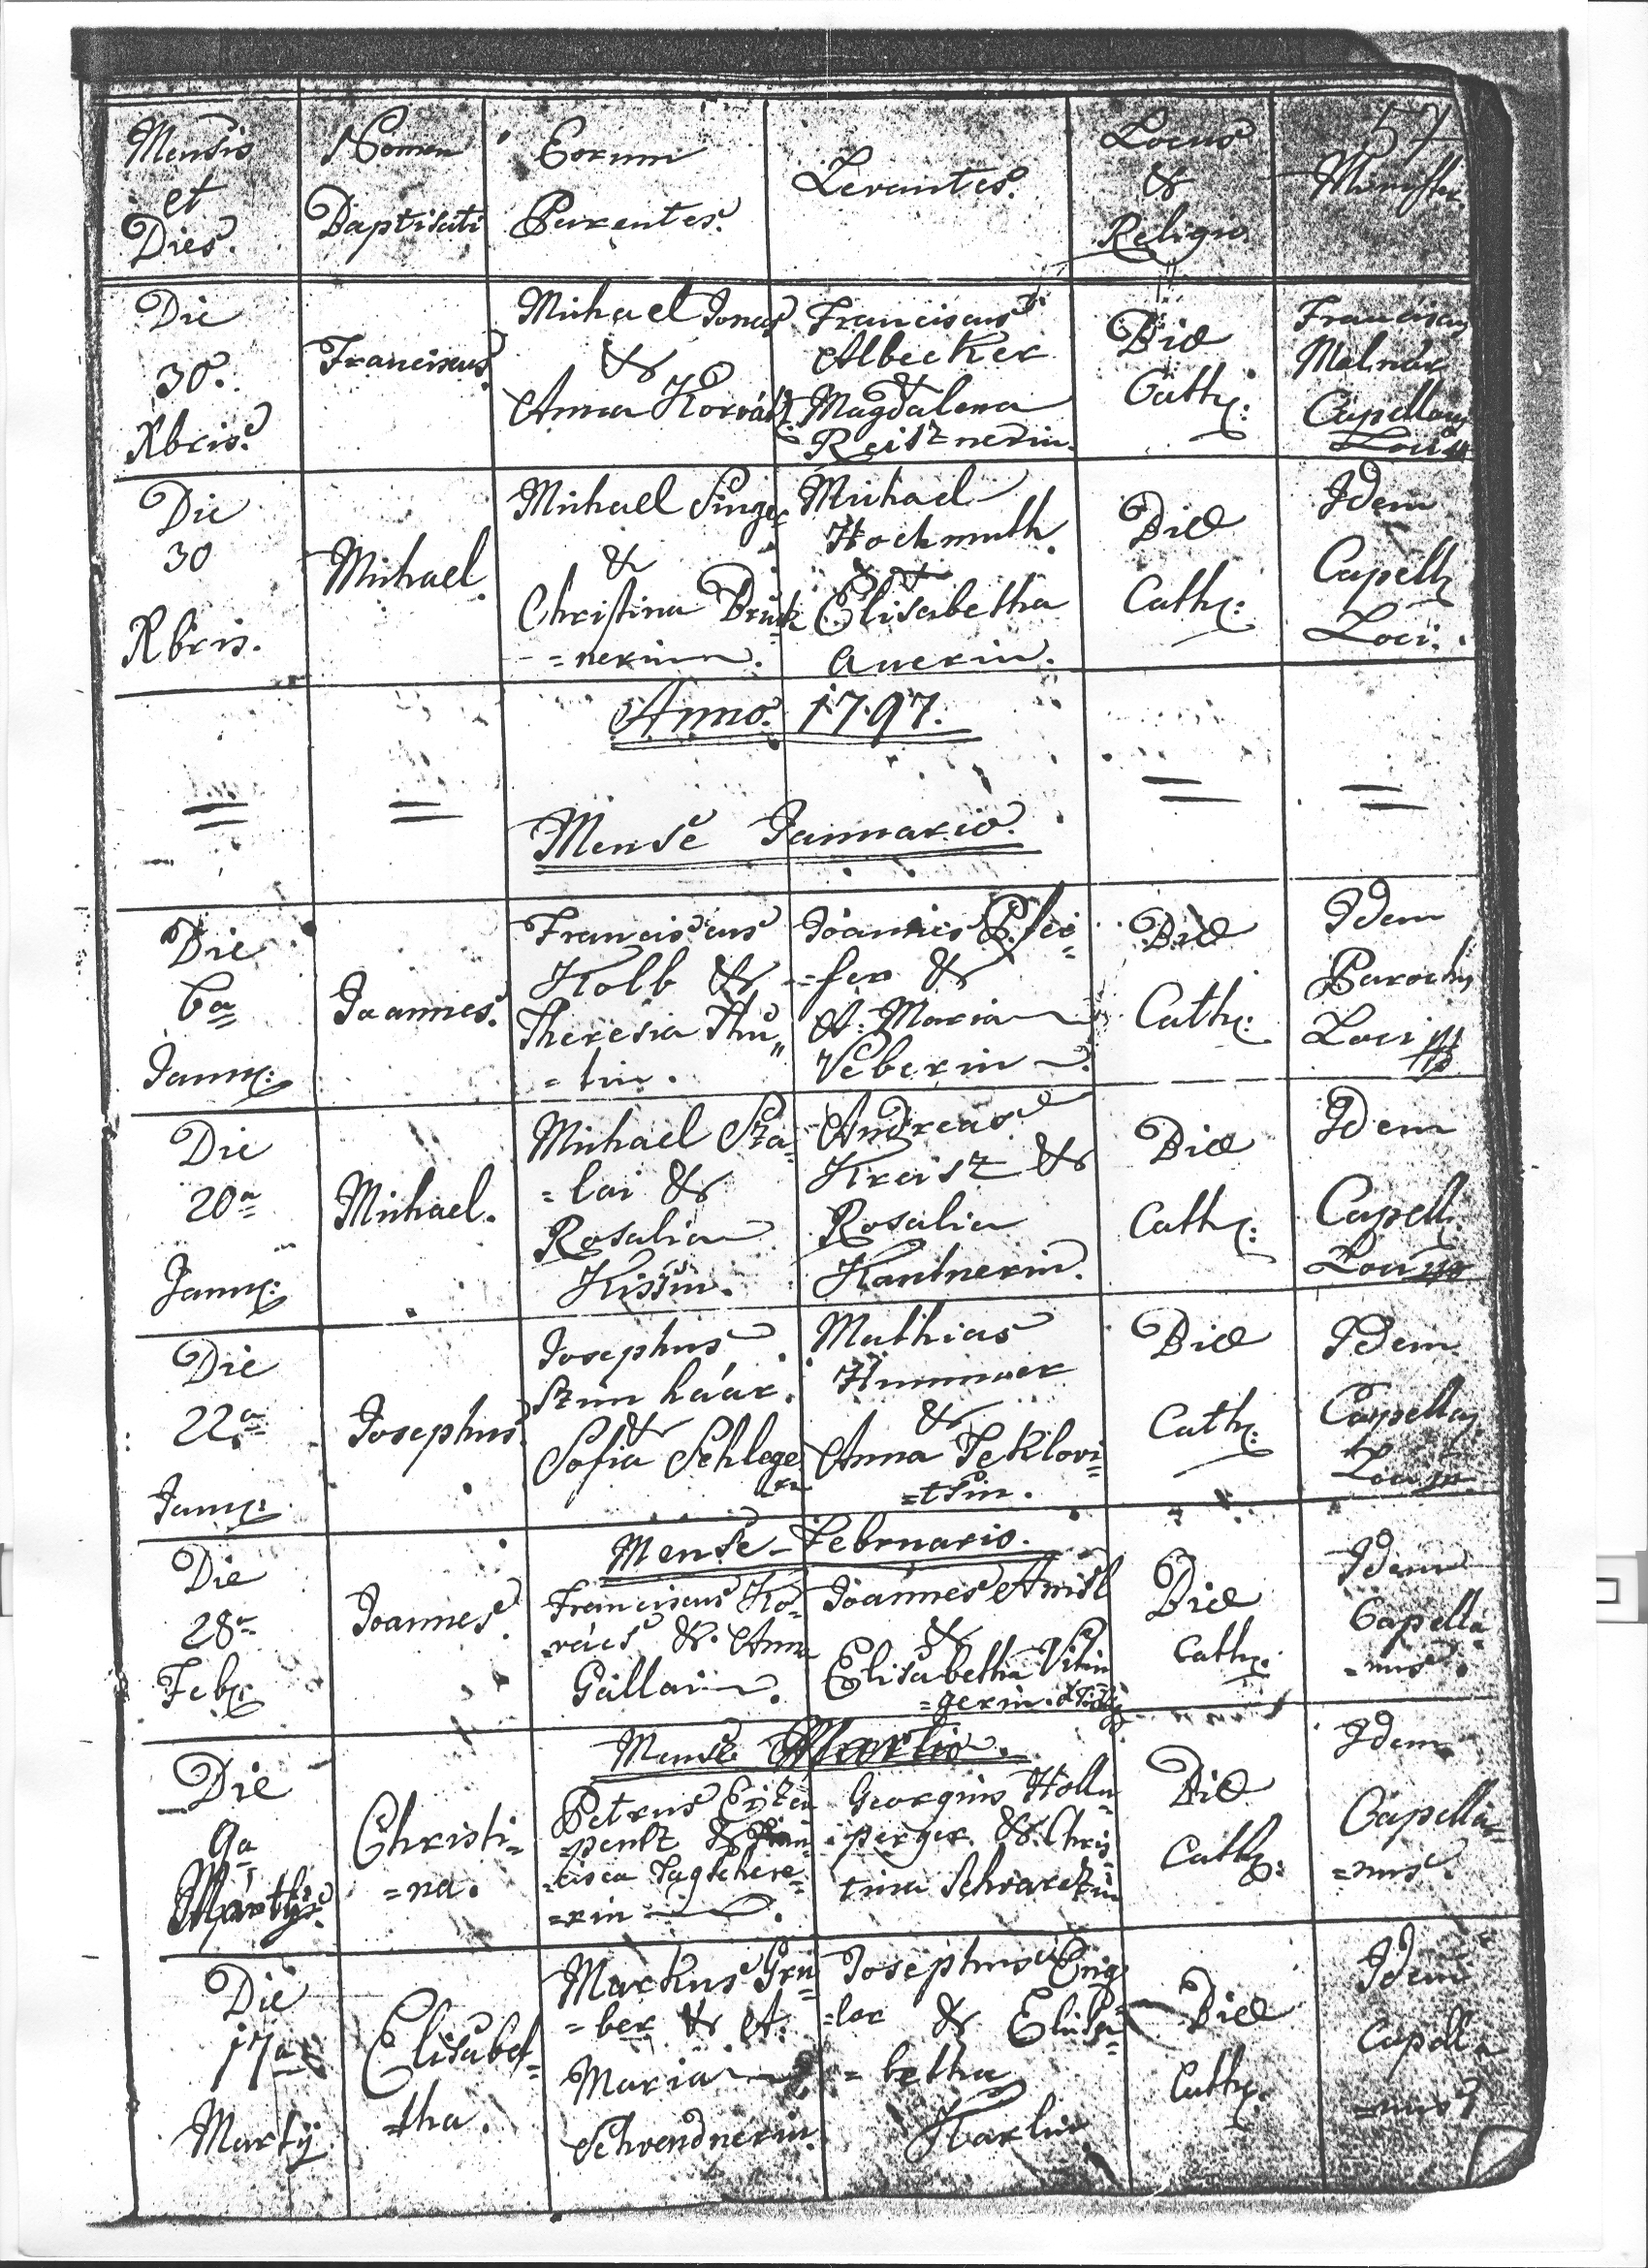 57
Mensis
et
Dies.
Nomen
Baptisati
Eorum
Parentes.
Levantes.
Locus
&
Religio
Minister.
Die
30.
Xbris.
Franciscus
Michael Jonas
&
Anna Horváth
Franciscus
Albecker
&
Magdalena
Reisznerin.
Bio
Cath:
Franciscus
Molnár
Capellan
Loci
Die
30
Xbris.
Michael.
Michael Singer
&
Christina Bruck
=nerin.
Michael
Hochmuth.
&
Elisabetha
Auerin.
Bio
Cath:
Idem
Capell
Loci.
Anno. 1797.
Mense Januario.
Die
6a
Janu:
Joannes.
Franciscus
Kolb &
Theresia
=tin.
Joannes Pfei=
=fer &
A: Maria
Veberin
Bio
Cath:
Idem
Parochus
Loci
Die
20a
Janu:
Michael.
Michael Sza=
=lai &
Rosalia
Kissin.
Andreas
Kreisz &
Rosalia
Kantnerin.
Bio
Cath:
Idem
Capell.
Loci
Die
22a
Janu:
Josephus
Josephus
&
Sofia Schlege
Mathias
Hummer
&
Anna Teklovi=
=tsin.
Bio
Cath:
Idem
Capellan
Loci
Mense Februario.
Die
28a
Feb:
Joannes.
Franciscus Ko=
=vács &. Anna
Gállai.
Joannes
&
Elisabetha
=gerin.
Bio
Cath:
Idem
Capella
=nus.
Mense Martio.
Die
9a
Martii
Christi=
=na.
Petrus
&
=cisca Tagschere=
=rin.
Georgius Holln=
=perger. &. Chris=
tina Schvarczin
Bio
Cath:
Idem
Capella=
=nus.
Die
17a
Martij
Elisabet=
=tha.
Markus Gru=
=ber & A.
Maria
Schvendnerin.
Josephus Eng=
=ler & Elisa=
=betha
Karlin
Bio
Cath:
Idem
Capella
=nus